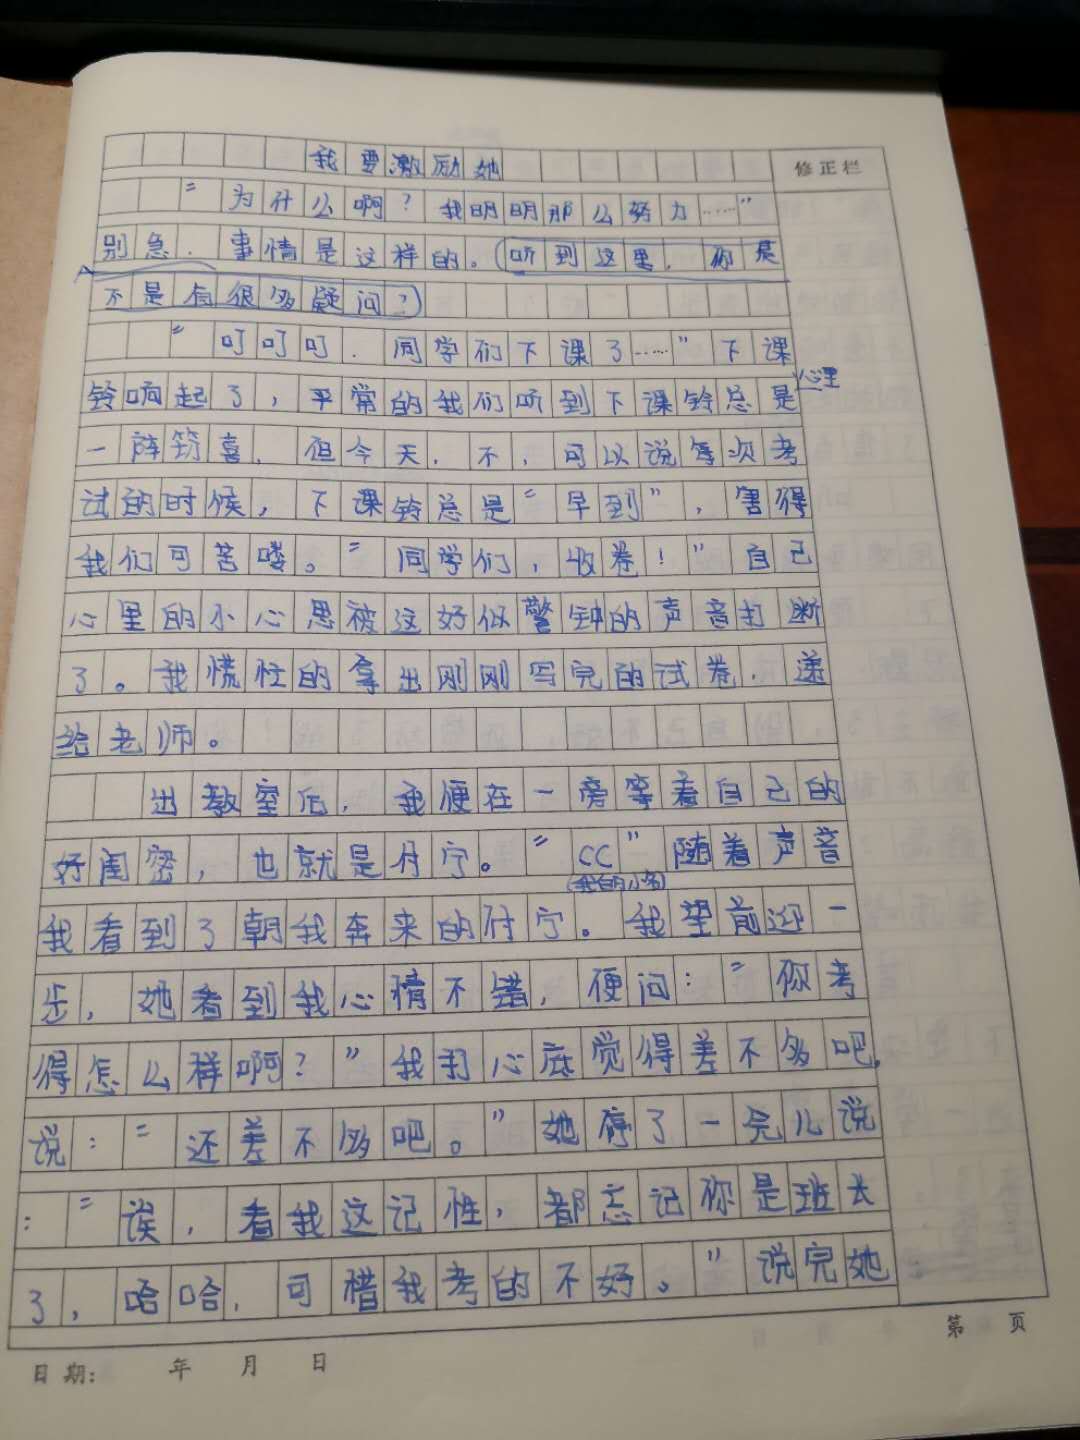 我要激励她
修正栏
“为什么啊？我明明那么努力……”
别急，事情是这样的。（听到这里，你是
不是有很多疑问？）
“叮叮叮，同学们下课了……”下课
铃响起了，平常的我们听到下课铃总是
心理
一阵窃喜，但今天，不，可以说每次考
试的时候，下课铃总是“早到”，害得
我们可苦喽。“同学们，收卷！”自己
心里的小心思被这好似警钟的声音打断
了。我慌忙的拿出刚刚写完的试卷，递
给老师。
出教室后，我便在一旁等着自己的
好闺密，也就是付宁。“CC”随着声音
（我的小名）
我看到了朝我奔来的付宁。我望前迎一
步，她看到我心情不错，便问：“你考
得怎么样啊？”我打心底觉得差不多吧，
说：“还差不多吧。”她停了一会儿说
：“诶，看我这记性，都忘记你是班长
了，哈哈，可惜我考的不好。”说完她
日期： 年 月 日
第 页